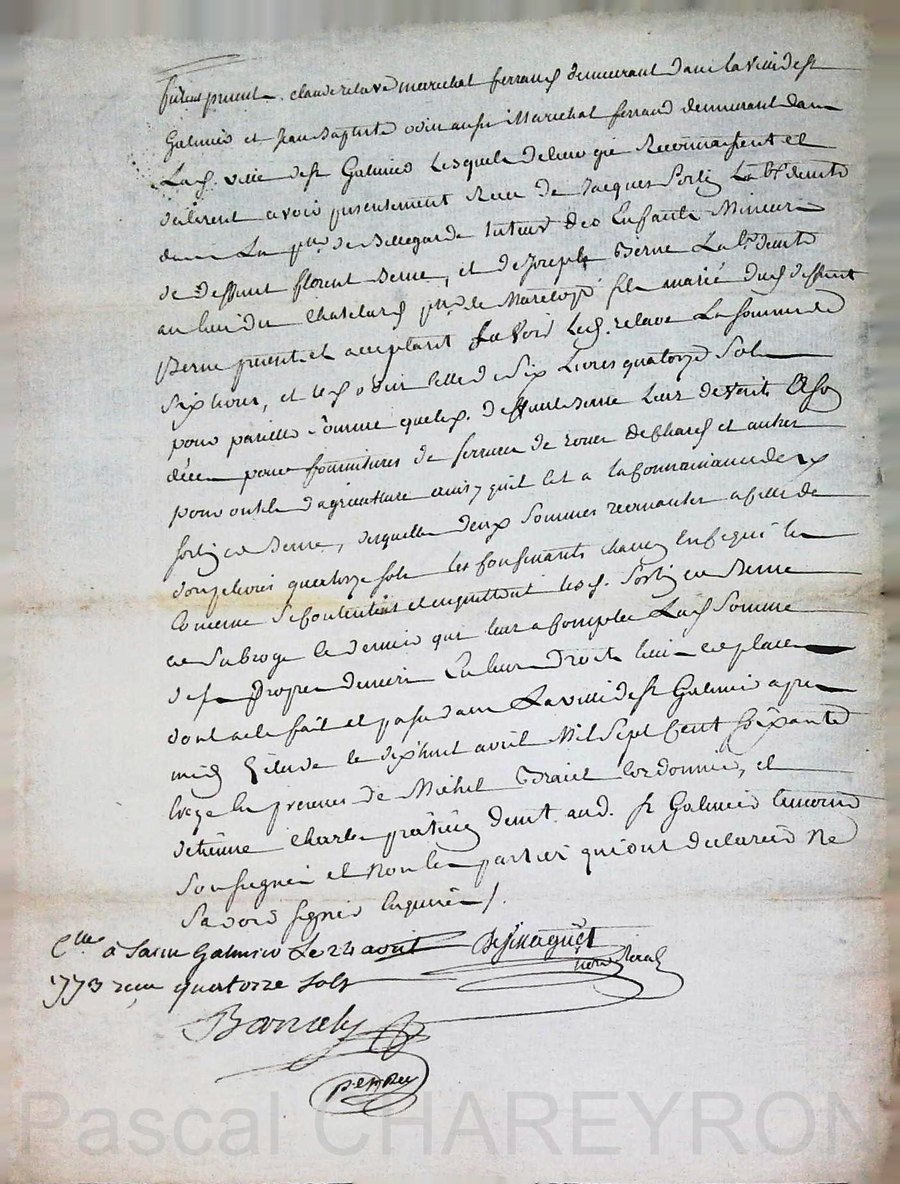 furent present claude relave marechal ferrand demeurant dans la ville de st
Galmier et Jean Baptiste odin aussi Marechal ferrand demeurant dans
Lad. ville de st Galmier Lesquels de leur gre Reconnaissent et
declarent avoir presentement Receu de Jacques Sortz Lab.r demt
dans La p.sse de Bellegarde tuteur des Enfants Mineurs
de deffunt florent Berne, et de Joseph Berne Lab.r demt
au lieu du Chatelard p.sse de fils marié dud. deffunt
Berne present et acceptant savoir led. relave La somme de
Six livres, et led. odin celle de Six Livres quatorze Sols
pour pareille somme que led. deffunt Berne leur devoit
pour fournitures de ferrure de roues de chard et autres
pour outils d'agriculture ainsy quil est a la connaissance desd.
Sortz et Berne, desquelles deux Sommes revenantes a celle de
douze livres quatorze sols les confessants chacun en ce qui les
concerne se contentent et en quittent lesd. Sortz et Berne
et subroge le dernier qui leur a compté Lad. Somme
de ses propres deniers En leur Droit lieu et place
dont acte fait et passé dans La ville de st Galmier apres
midy Etude le dix huit avril Mil Sept Cent soixante
treze En presence de Michel cordonnier, et
d'etienne Charles praticien demt aud. st Galmier temoins
Soussignés et Non les parties qui ont declarées Ne
Savoir signer Enquises /.
C.lle à Saint Galmier Le 24 avril
1773 reçu quatorze sols
not. Royal
Pascal CHAREYRON